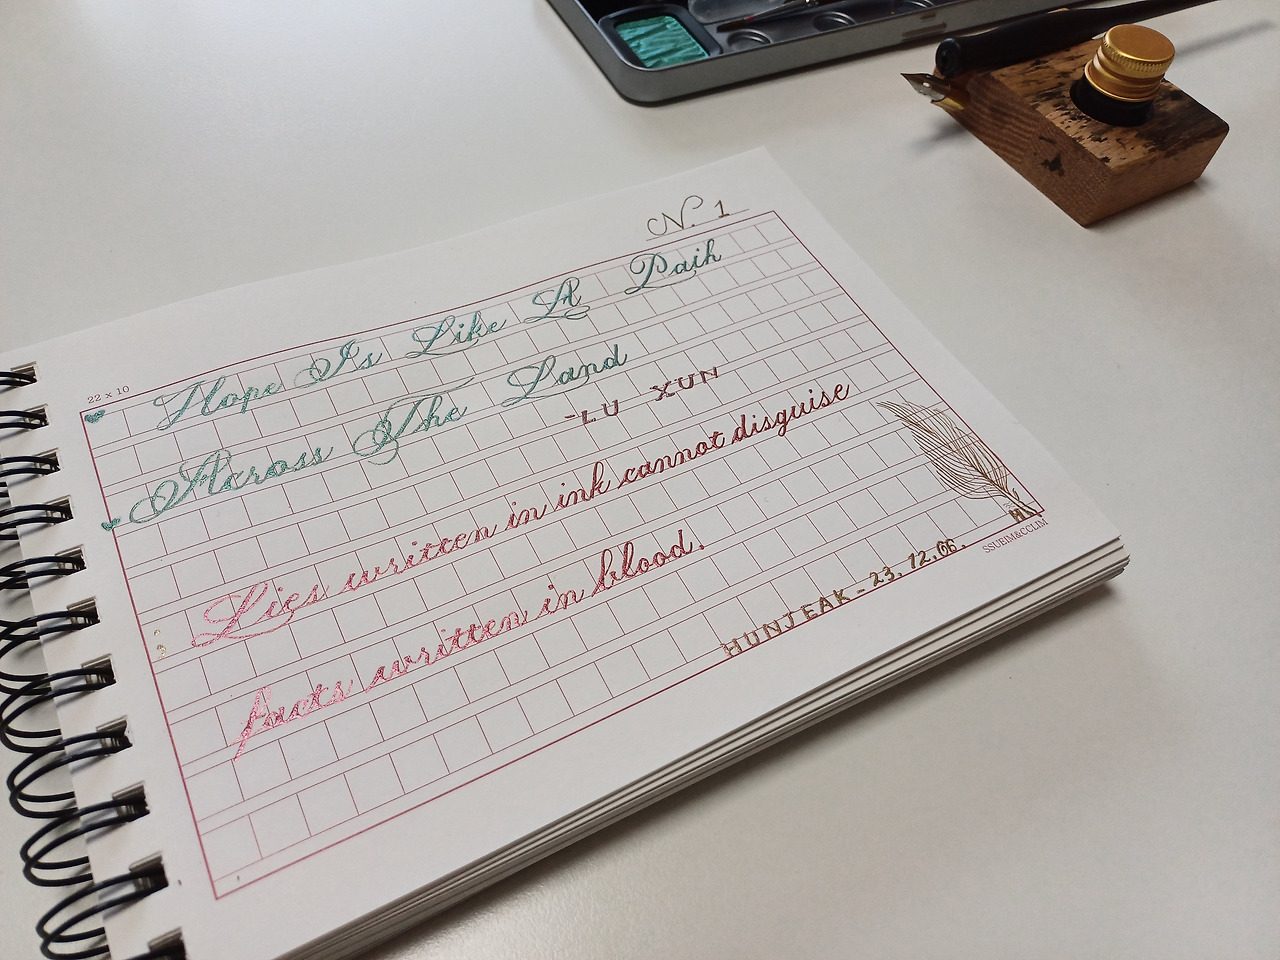 N. 1
22 x 10
Hope Is Like A Path
Across The Land
-LU XUN
Lies written in ink cannot disguise
facts written in blood.
HUNJEAK - 23.12.06.
SSUEIM&CCLIM